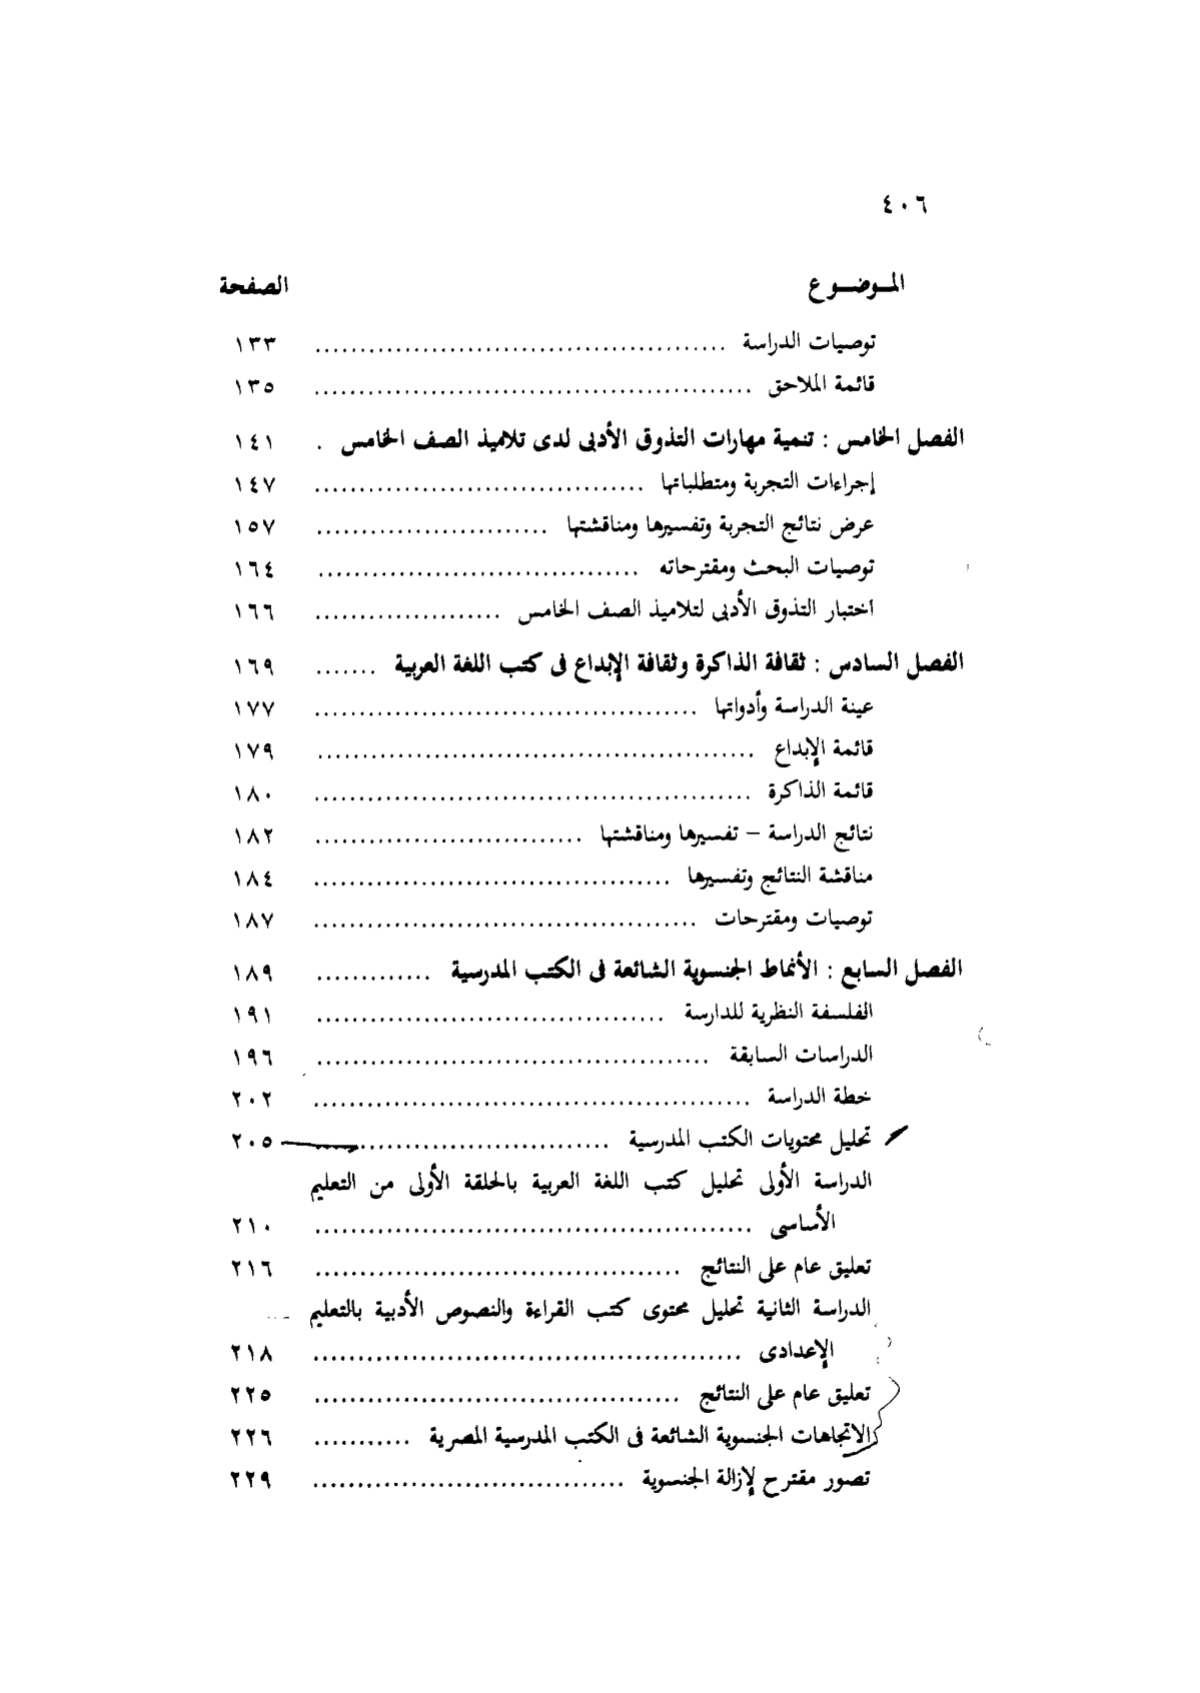 ٤٠٦
المـوضـوع الصفحة
توصيات الدراسة .............................................. ١٣٣
قائمة الملاحق ................................................. ١٣٥
الفصل الخامس : تنمية مهارات التذوق الأدبى لدى تلاميذ الصف الخامس . ١٤١
إجراءات التجربة ومتطلباتها ..................................... ١٤٧
عرض نتائج التجربة وتفسيرها ومناقشتها .......................... ١٥٧
توصيات البحث ومقترحاته .................................... ١٦٤
اختبار التذوق الأدبى لتلاميذ الصف الخامس ..................... ١٦٦
الفصل السادس : ثقافة الذاكرة وثقافة الإبداع فى كتب اللغة العربية ....... ١٦٩
عينة الدراسة وأدواتها ........................................... ١٧٧
قائمة الإبداع ................................................. ١٧٩
قائمة الذاكرة ................................................. ١٨٠
نتائج الدراسة – تفسيرها ومناقشتها .............................. ١٨٢
مناقشة النتائج وتفسيرها ........................................ ١٨٤
توصيات ومقترحات ........................................... ١٨٧
الفصل السابع : الأنماط الجنسوية الشائعة فى الكتب المدرسية ............. ١٨٩
الفلسفة النظرية للدارسة ....................................... ١٩١
الدراسات السابقة ............................................ ١٩٦
خطة الدراسة ................................................. ٢٠٢
تحليل محتويات الكتب المدرسية ................................. ٢٠٥
الدراسة الأولى تحليل كتب اللغة العربية بالحلقة الأولى من التعليم
الأساسى ................................................. ٢١٠
تعليق عام على النتائج ......................................... ٢١٦
الدراسة الثانية تحليل محتوى كتب القراءة والنصوص الأدبية بالتعليم
الإعدادى ................................................ ٢١٨
تعليق عام على النتائج ......................................... ٢٢٥
الاتجاهات الجنسوية الشائعة فى الكتب المدرسية المصرية ........... ٢٢٦
تصور مقترح لإزالة الجنسوية ................................... ٢٢٩